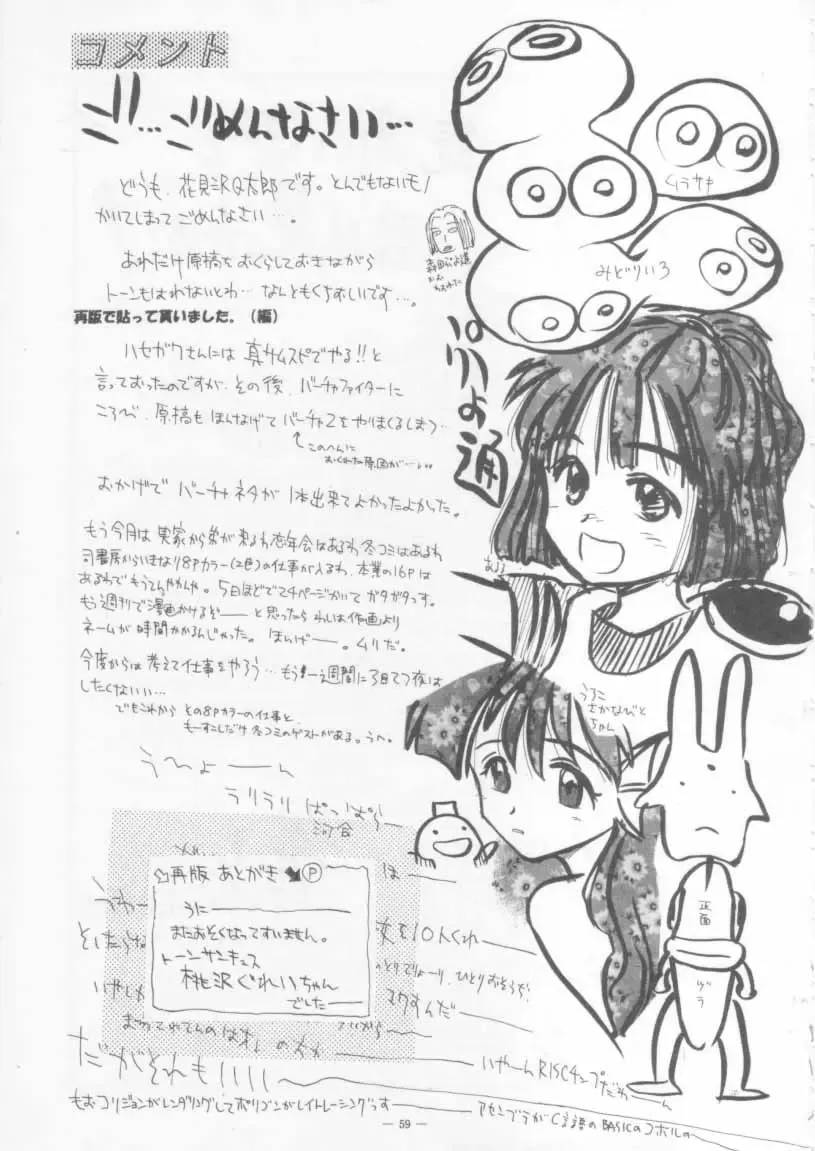 コメント
ゴ…ごめんなさい…
どうも、花見沢Q太郎です。とんでもないモノ
かいてしまってごめんなさい…。
あれだけ原稿をおくらしておきながら
トーンもはれないとわ…なんともくちおしいです…。
再版で貼って貰いました。(編)
ハセガワさんには真サムスピでやる!!と
言っておったのですが、その後、バーチャファイターに
ころび、原稿もほんなげてバーチャ2をやりまくるしまつ…
↑このへんに
おくれた原因が…
おかげでバーチャネタが1本出来てよかったよかった。
もう今月は実家から弟が来るわ忘年会はあるわ冬コミはあるわ
司書房からいきなり8Pカラー(2色)の仕事が入るわ、本業の16Pは
あるわでもうてんやわんや。5日ほどで24ページかいてガタガタっす。
もう週刊で漫画かけるぞーーと思ったらわしは作画より
ネームが時間かかるんじゃった。ほいげーー。ムリだ。
今度からは考えて仕事をやろう…もう一週間に3日てつ夜は
したくないい…
でもこれからその8Pカラーの仕事と、
もーすこしだけ冬コミのゲストがある。うへ。
う〜ひょーーん
ラリラリぱっぱら
河合
ムラサキ
みどりいろ
うろこ
さかなびと
ちゃん
正面
ヅラ
再版 あとがき P
うに
またおそくなってすいません。
トーンサンキュス
桃沢ぐれいちゃん
でした
ほ
うわー
そしたらな
いやしか
変を10人くれ
ひとりでりょーり、ひとりおそうじ、
マクすんだ
だがそれもーーーー
いやーんRISCチップだわーーん
もおコリジョンがレンダリングしてポリゴンがレイトレーシングっす
アセンブラがC言語のBASICのコボルの
― 59 ―